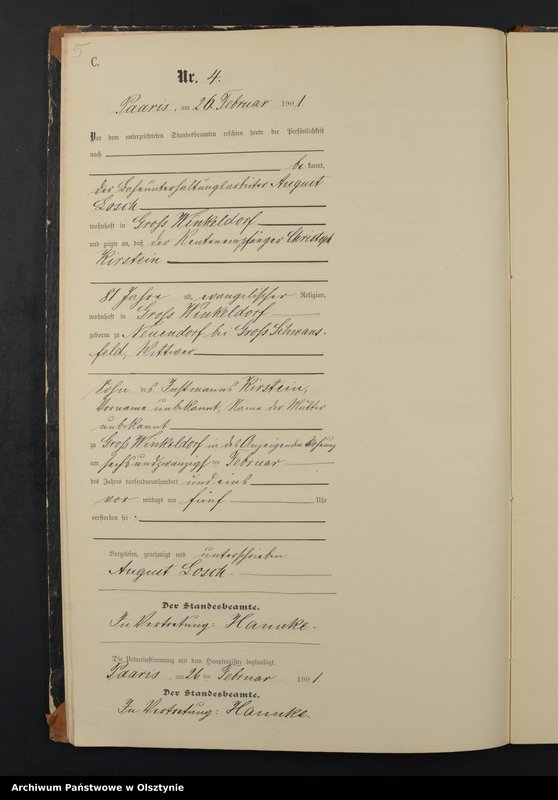 5
C.
Nr. 4.
Paaris, am 26. Februar 1901.
Vor dem unterzeichneten Standesbeamten erschien heute der Persönlichkeit
nach
be kannt,
der August
Losch
wohnhaft in Groß Winkeldorf
und zeigte an, daß der Rentenempfänger Christoph
Kirstein
81 Jahre alt, evangelischer Religion,
wohnhaft in Groß Winkeldorf
geboren zu Neuendorf bei Groß Schwans-
feld, Wittwer
Sohn des Instmanns Kirstein,
Vorname unbekannt, Name der Mutter
unbekannt
zu Groß Winkeldorf in des Anzeigenden Wohnung
am sechsundzwanzigsten Februar
des Jahres tausendneunhundert und eins
vor mittags um fünf Uhr
verstorben sei.
Vorgelesen, genehmigt und unterschrieben
August Losch.
Der Standesbeamte.
In Vertretung: Hannke.
Die Uebereinstimmung mit dem Hauptregister beglaubigt.
Paaris, am 26 ten Februar 1901
Der Standesbeamte.
In Vertretung: Hannke.
Archiwum Państwowe w Olsztynie